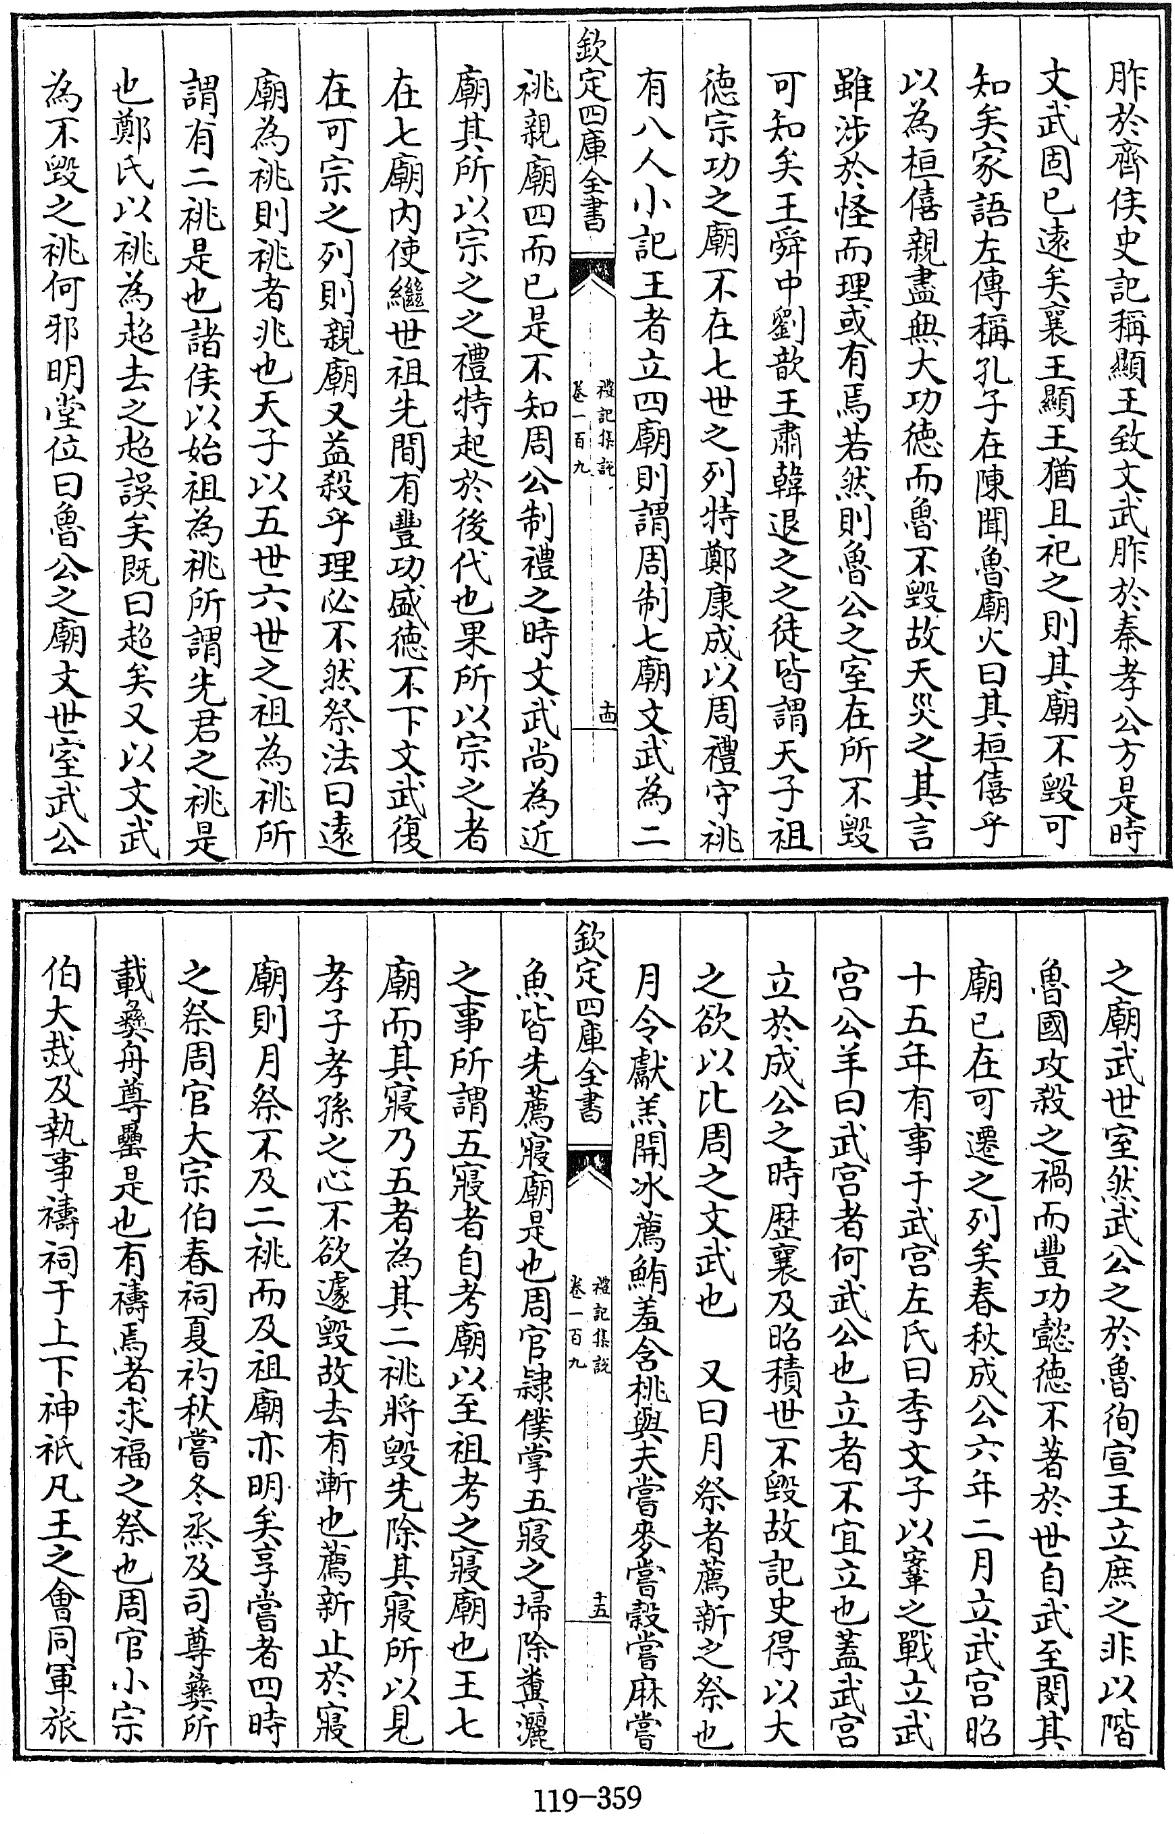 胙於齊侯史記稱顯王致文武胙於秦孝公方是時
文武固已遠矣襄王顯王猶且祀之則其廟不毀可
知矣家語左傳稱孔子在陳聞魯廟火曰其桓僖乎
以為桓僖親盡無大功徳而魯不毀故天災之其言
雖涉於怪而理或有焉若然則魯公之室在所不毀
可知矣王舜中劉歆王肅韓退之之徒皆謂天子祖
徳宗功之廟不在七世之列特鄭康成以周禮守祧
有八人小記王者立四廟則謂周制七廟文武為二
欽定四庫全書
禮記集說
卷一百九
十四
祧親廟四而已是不知周公制禮之時文武尚為近
廟其所以宗之之禮特起於後代也果所以宗之者
在七廟内使繼世祖先間有豐功盛徳不下文武復
在可宗之列則親廟又益殺乎理必不然祭法曰遠
廟為祧則祧者兆也天子以五世六世之祖為祧所
謂有二祧是也諸侯以始祖為祧所謂先君之祧是
也鄭氏以祧為超去之超誤矣既曰超矣又以文武
為不毀之祧何邪明堂位曰魯公之廟文世室武公
之廟武世室然武公之於魯徇宣王立庶之非以階
魯國攻殺之禍而豐功懿徳不著於世自武至閔其
廟已在可遷之列矣春秋成公六年二月立武宫昭
十五年有事于武宫左氏曰季文子以鞌之戰立武
宫公羊曰武宫者何武公也立者不宜立也蓋武宫
立於成公之時歴襄及昭積世不毀故記史得以大
之欲以比周之文武也　又曰月祭者薦新之祭也
月令獻羔開冰薦鮪羞含桃與夫嘗麥嘗穀嘗麻嘗
欽定四庫全書
禮記集說
卷一百九
十五
魚皆先薦寢廟是也周官隷僕掌五寢之埽除糞灑
之事所謂五寢者自考廟以至祖考之寢廟也王七
廟而其寢乃五者為其二祧將毀先除其寢所以見
孝子孝孫之心不欲遽毀故去有漸也薦新止於寢
廟則月祭不及二祧而及祖廟亦明矣享嘗者四時
之祭周官大宗伯春祠夏礿秋嘗冬烝及司尊彛所
載彛舟尊罍是也有禱焉者求福之祭也周官小宗
伯大烖及執事禱祠于上下神祇凡王之會同軍旅
119-359